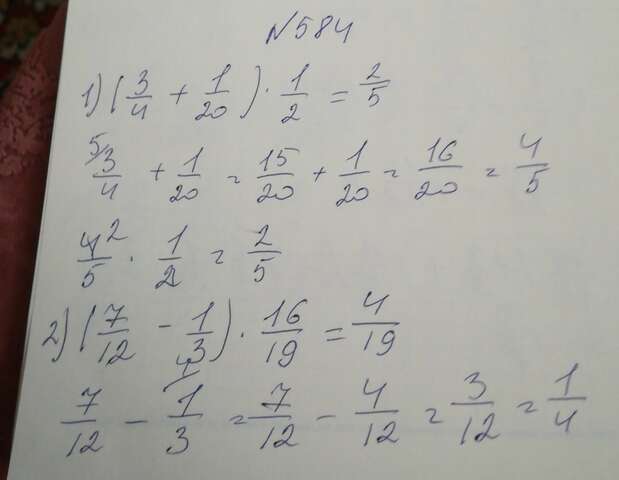 N584
1) (3/4 + 1/20) · 1/2 = 2/5
5/ 3/4 + 1/20 = 15/20 + 1/20 = 16/20 = 4/5
4 2/5 · 1/2 = 2/5
2) (7/12 - 1/3) · 16/19 = 4/19
7/12 - 4/ 1/3 = 7/12 - 4/12 = 3/12 = 1/4